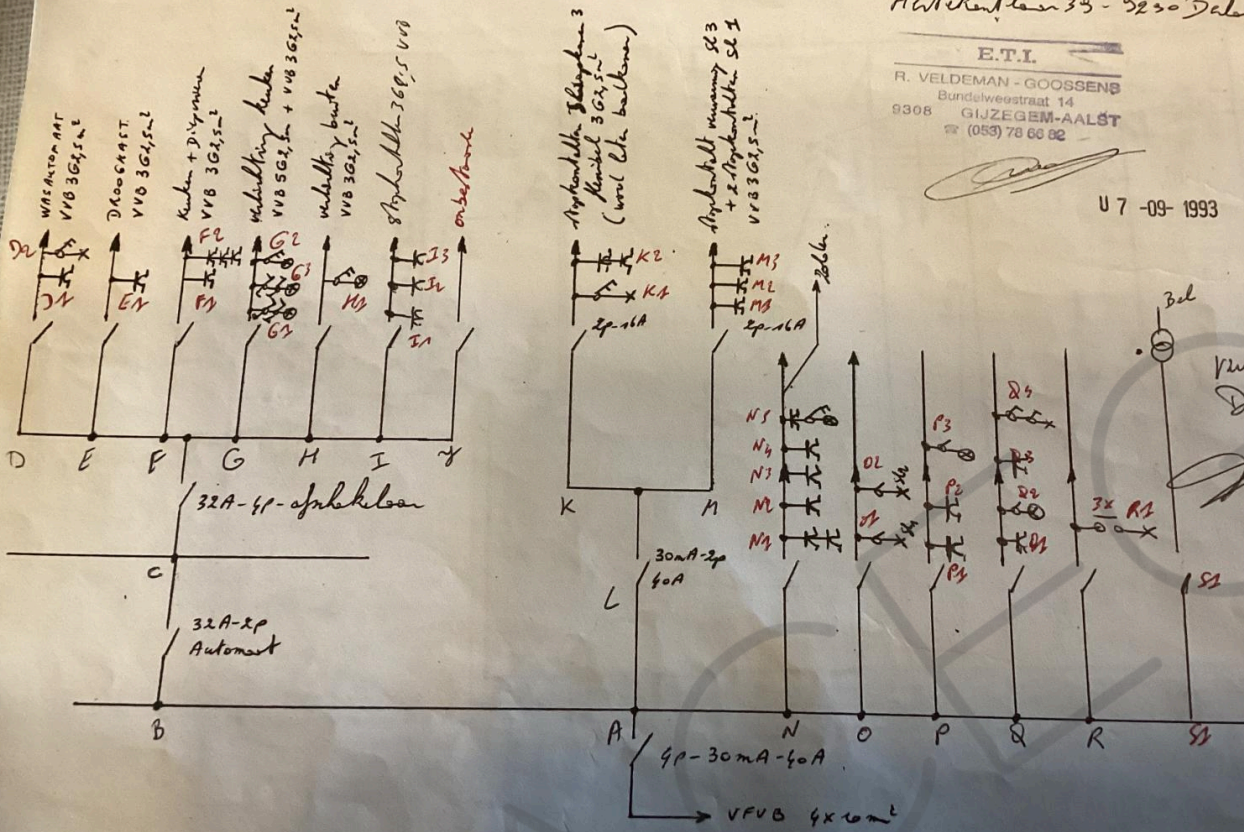 39 - 9230
E.T.I.
R. VELDEMAN - GOOSSENS
Bundelweestraat 14
9308 GIJZEGEM-AALST
☎ (053) 78 66 82
07 -09- 1993
WASAUTOMAAT
VVB 3G2,5m²
DROOGKAST.
VVB 3G2,5m²
Keuken + Dispense
VVB 3G2,5m²
verlichting keuken
VVB 5G2,5m + VVB 3G2,5m²
verlichting buiten
VVB 3G2,5m²
Stopkontakten 3G2,5 VVB
onbestemde
Stopkontakten Slaapkamer 3
3G2,5m²
Stopkontakt slk3
+ 2 Stopkontakten slk 1
VVB 3G2,5m²
D2
D1
E1
F2
F1
G2
G3
G1
H1
I3
I2
I1
K2
K1
M3
M2
M1
2p-16A
2p-16A
Bel
N5
N4
N3
N2
N1
O2
O1
P3
P2
P1
Q4
Q3
Q2
Q1
3x
R1
S1
D E F G H I J
K M
32A-4p-
C
32A-2p
Automaat
30mA-2p
40A
L
B A N O P Q R S1
4p-30mA-40A
VFVB 4x10m²